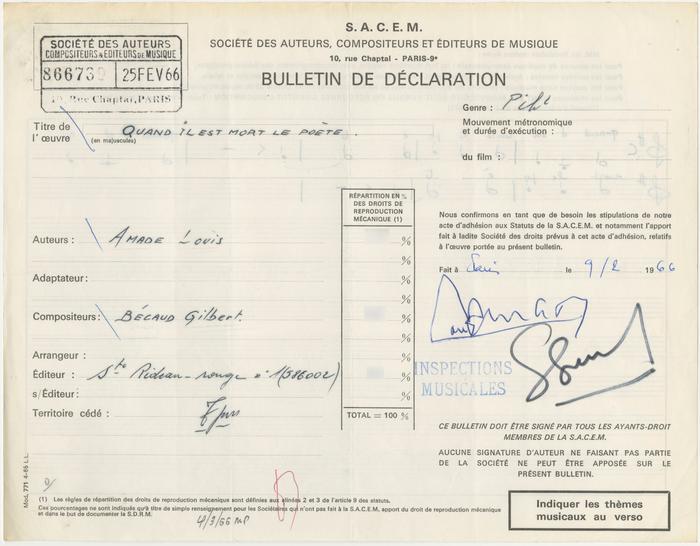 S.A.C.E.M.
SOCIÉTÉ DES AUTEURS, COMPOSITEURS ET ÉDITEURS DE MUSIQUE
10, rue Chaptal - PARIS-9e
BULLETIN DE DÉCLARATION
SOCIÉTÉ DES AUTEURS
COMPOSITEURS & EDITEURS DE MUSIQUE
25 FEV 66
10, Rue Chaptal, PARIS
Genre :
Titre de l'œuvre (en majuscules) QUAND IL EST MORT LE POÈTE.
Mouvement métronomique
et durée d'exécution :
du film :
RÉPARTITION EN %
DES DROITS DE
REPRODUCTION
MÉCANIQUE (1)
Nous confirmons en tant que de besoin les stipulations de notre
acte d'adhésion aux Statuts de la S.A.C.E.M. et notamment l'apport
fait à ladite Société des droits prévus à cet acte d'adhésion, relatifs
à l'œuvre portée au présent bulletin.
Auteurs : AMADE LOUIS %
%
Fait à Paris le 9/2 1966
Adaptateur : %
%
Compositeurs : BÉCAUD Gilbert. %
%
Arrangeur : %
Éditeur : Sté Rideau-rouge %
s/Éditeur : %
Territoire cédé :
TOTAL = 100 %
INSPECTIONS
MUSICALES
CE BULLETIN DOIT ÊTRE SIGNÉ PAR TOUS LES AYANTS-DROIT
MEMBRES DE LA S.A.C.E.M.
AUCUNE SIGNATURE D'AUTEUR NE FAISANT PAS PARTIE
DE LA SOCIÉTÉ NE PEUT ÊTRE APPOSÉE SUR LE
PRÉSENT BULLETIN.
Mod. 771 4-65 L.L.
(1) Les règles de répartition des droits de reproduction mécanique sont définies aux alinéas 2 et 3 de l'article 9 des statuts.
Ces pourcentages ne sont indiqués qu'à titre de simple renseignement pour les Sociétaires qui n'ont pas fait à la S.A.C.E.M. apport du droit de reproduction mécanique
et dans le but de documenter la S.D.R.M.
4/3/66
Indiquer les thèmes
musicaux au verso